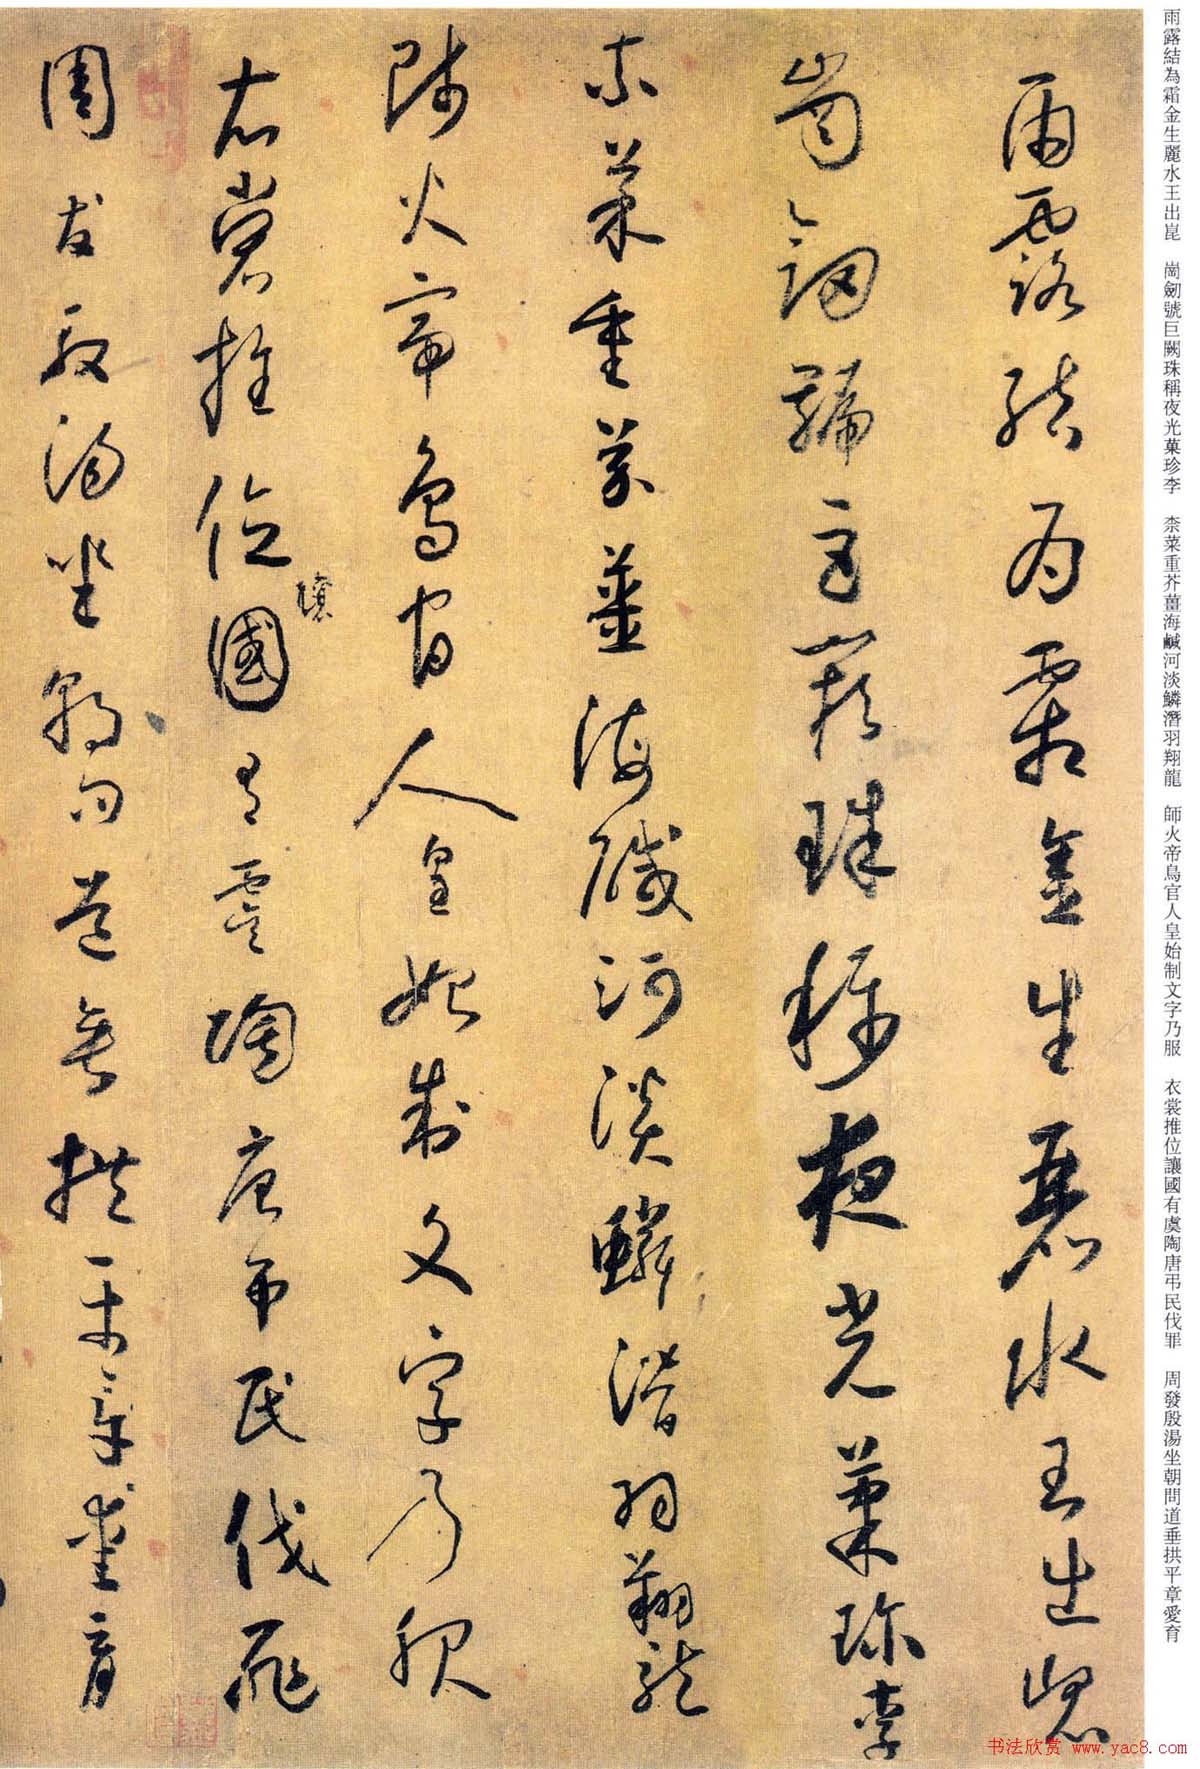 雨露結為霜金生麗水玉出崑
崗劒號巨闕珠稱夜光菓珍李
柰菜重芥薑海鹹河淡鱗潛羽翔龍
師火帝鳥官人皇始制文字乃服
衣裳推位讓國有虞陶唐弔民伐罪
周發殷湯坐朝問道垂拱平章愛育
雨露結為霜金生麗水王出崑　崗劒號巨闕珠稱夜光菓珍李　柰菜重芥薑海鹹河淡鱗潛羽翔龍　師火帝鳥官人皇始制文字乃服　衣裳推位讓國有虞陶唐弔民伐罪　周發殷湯坐朝問道垂拱平章愛育
书法欣赏 www.yac8.com